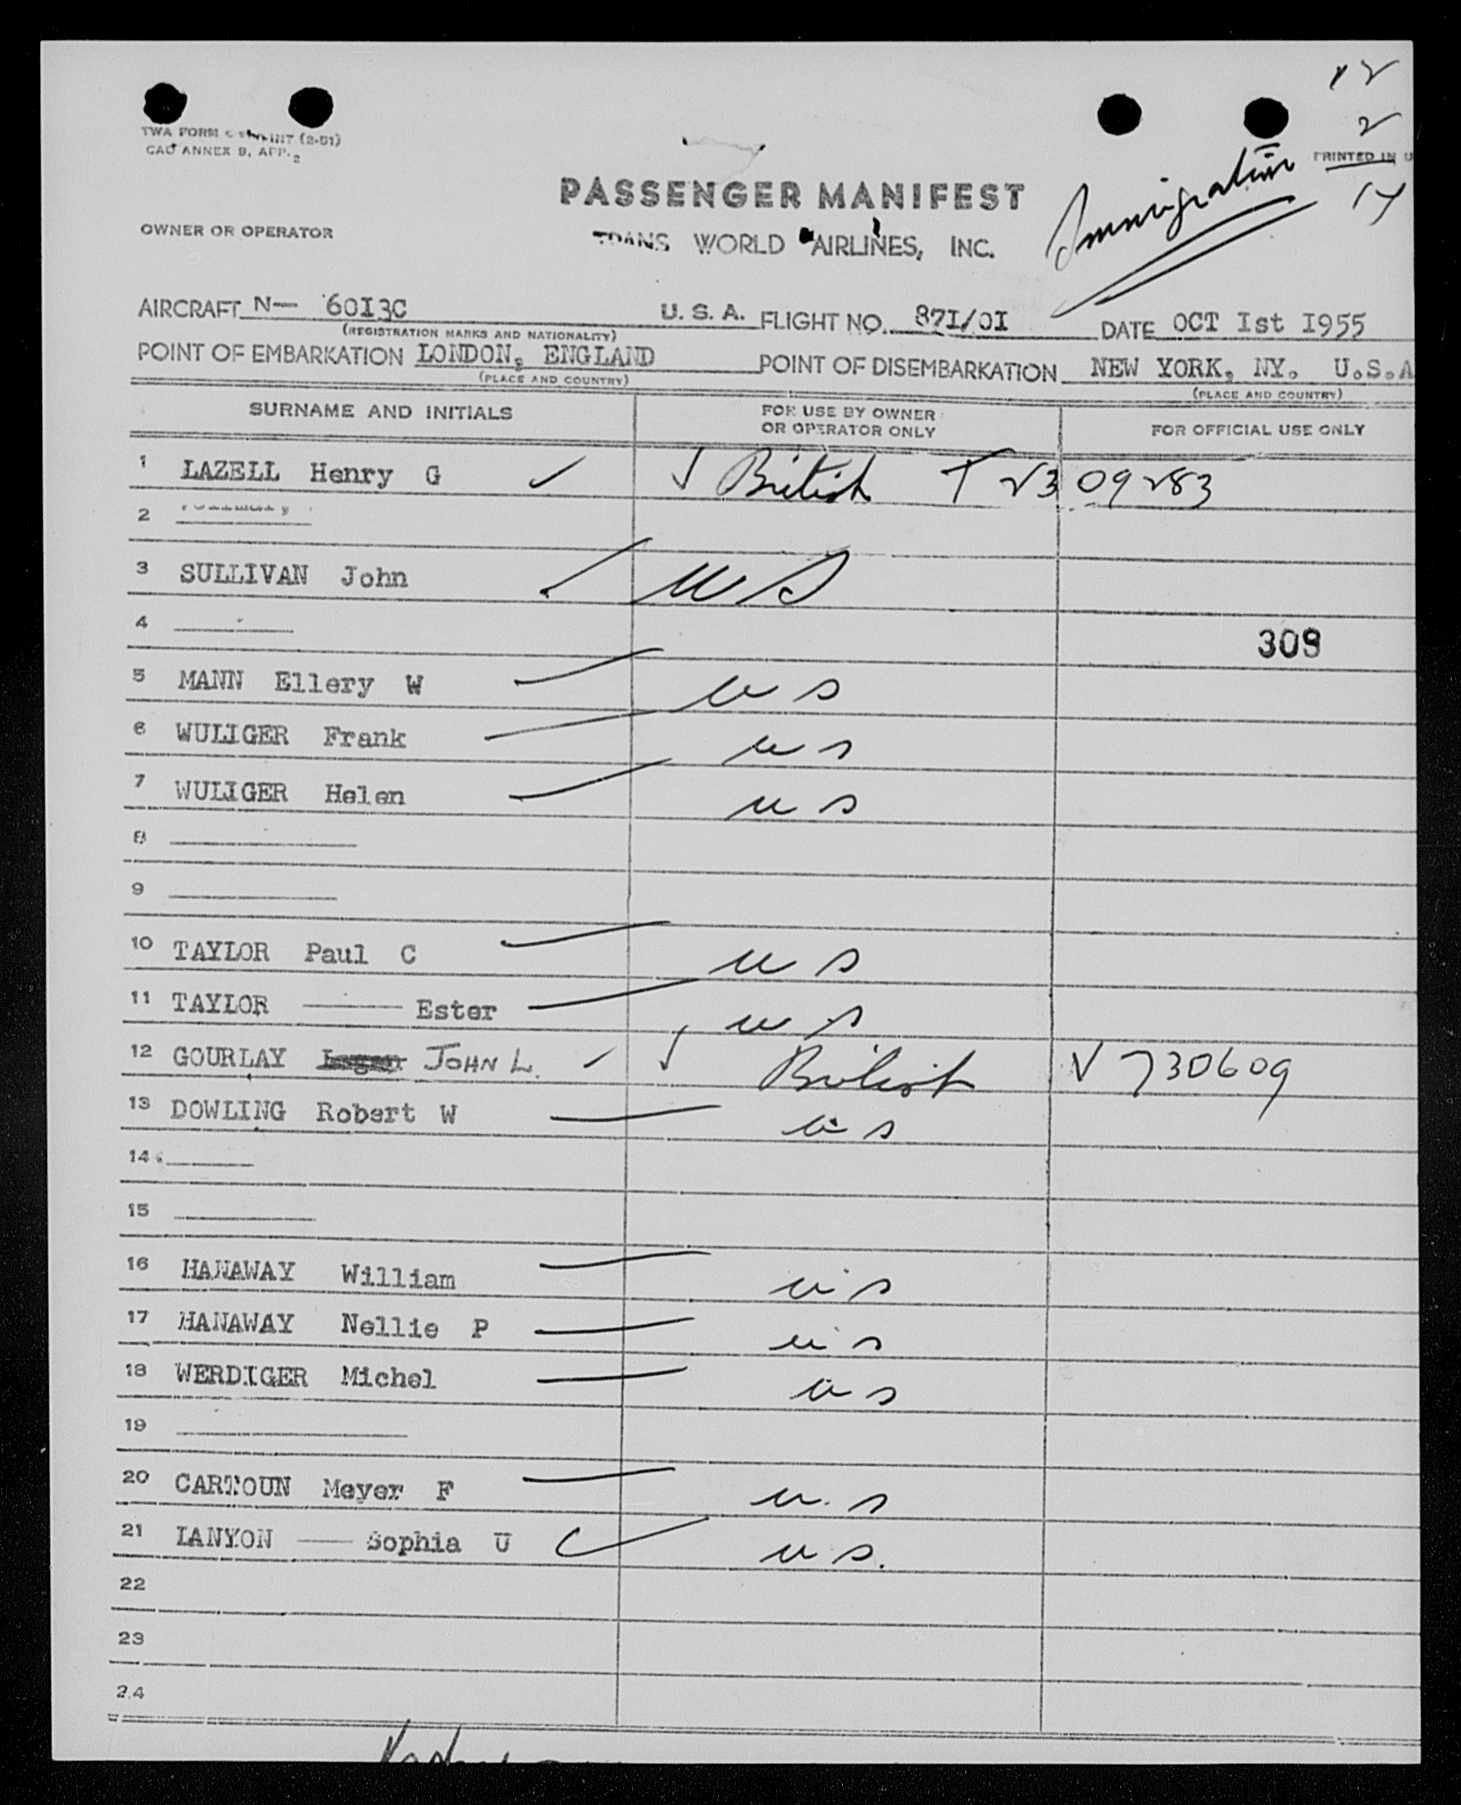 12
2
14
TWA FORM (2-51)
PRINTED IN U
Immigration
PASSENGER MANIFEST
OWNER OR OPERATOR
TRANS WORLD AIRLINES, INC.
AIRCRAFT N— 60I3C U. S. A. FLIGHT NO. 87I/0I DATE OCT Ist I955
(REGISTRATION MARKS AND NATIONALITY)
POINT OF EMBARKATION LONDON, ENGLAND POINT OF DISEMBARKATION NEW YORK, NY. U.S.A
(PLACE AND COUNTRY) (PLACE AND COUNTRY)
SURNAME AND INITIALS FOR USE BY OWNER OR OPERATOR ONLY FOR OFFICIAL USE ONLY
1 LAZELL Henry G ✓ ✓ British
2
3 SULLIVAN John US
4 309
5 MANN Ellery W us
6 WULIGER Frank us
7 WULIGER Helen us
8
9
10 TAYLOR Paul C us
11 TAYLOR — Ester us
12 GOURLAY JOHN L. ✓ ✓ British V 730609
13 DOWLING Robert W us
14
15
16 HANAWAY William us
17 HANAWAY Nellie P us
18 WERDIGER Michel us
19
20 CARTOUN Meyer F u.s
21 LANYON — Sophia U us.
22
23
24